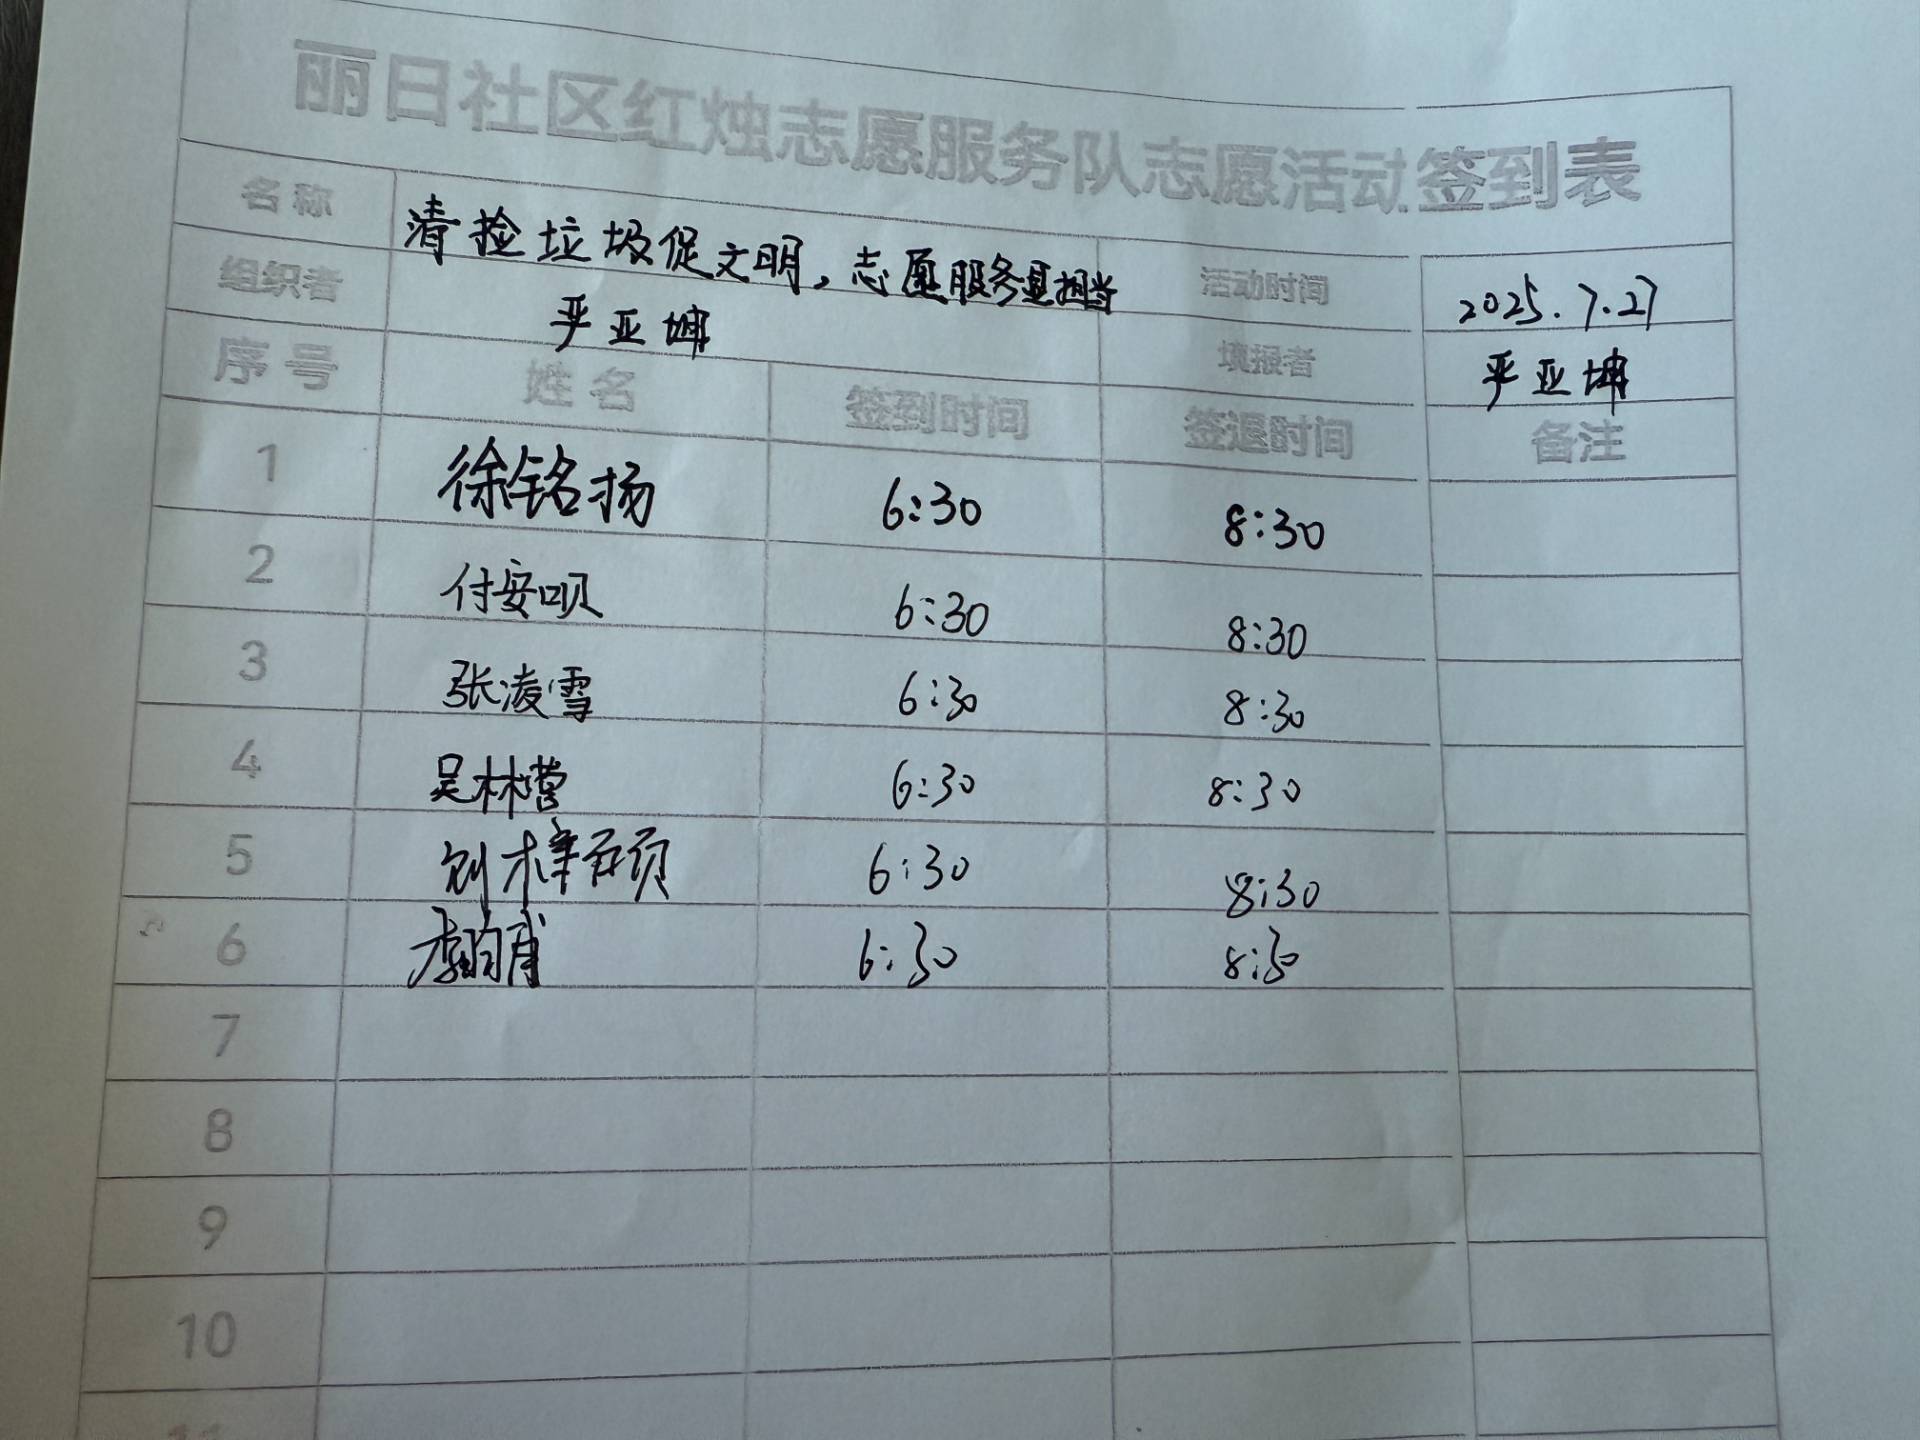 丽日社区红烛志愿服务队志愿活动签到表
名称 清捡垃圾促文明,志愿服务显担当 活动时间 2025.7.27
组织者 严亚坤 填报者 严亚坤
序号 姓名 签到时间 签退时间 备注
1 徐铭扬 6:30 8:30
2 付安呗 6:30 8:30
3 张凌雪 6:30 8:30
4 吴林 6:30 8:30
5 刘梓硕 6:30 8:30
6 李昀甫 6:30 8:30
7
8
9
10
11